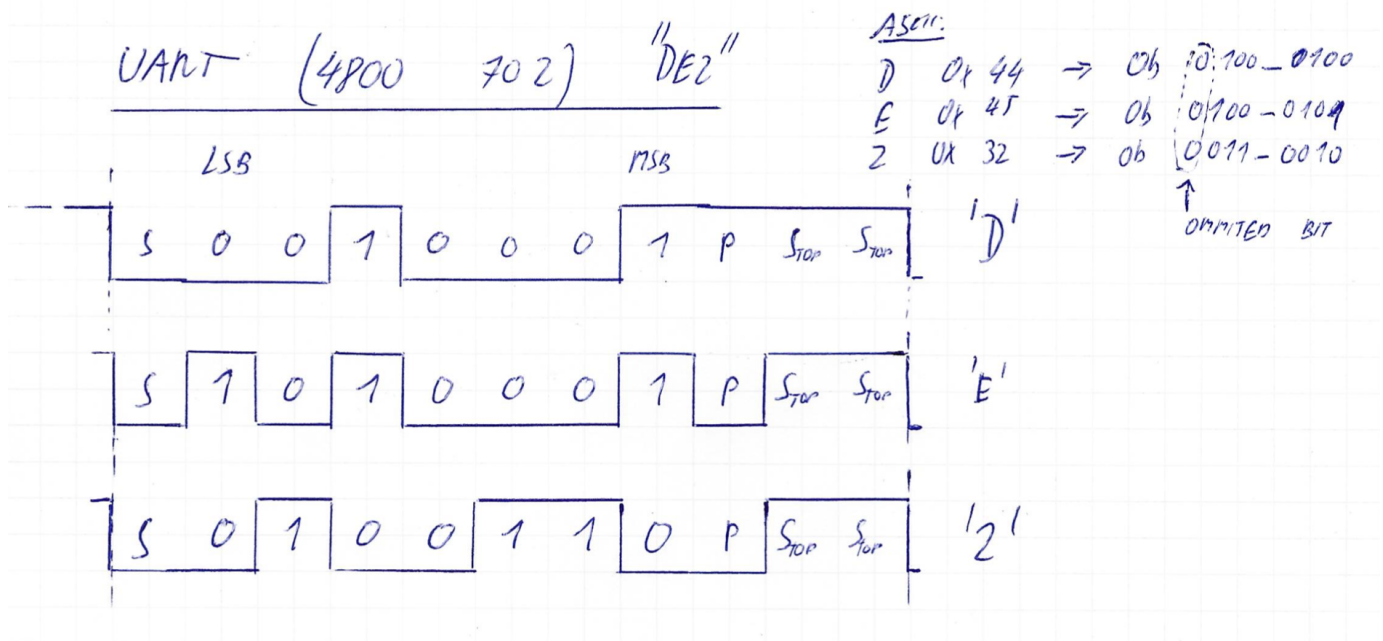 UART (4800 7O2) "DE2"
ASCII:
D 0x 44 → 0b 0100_0100
E 0x 45 → 0b 0100-0101
2 0x 32 → 0b 0011-0010
↑
OMMITED BIT
LSB MSB
S 0 0 1 0 0 0 1 P STOP STOP 'D'
S 1 0 1 0 0 0 1 P STOP STOP 'E'
S 0 1 0 0 1 1 0 P STOP STOP '2'